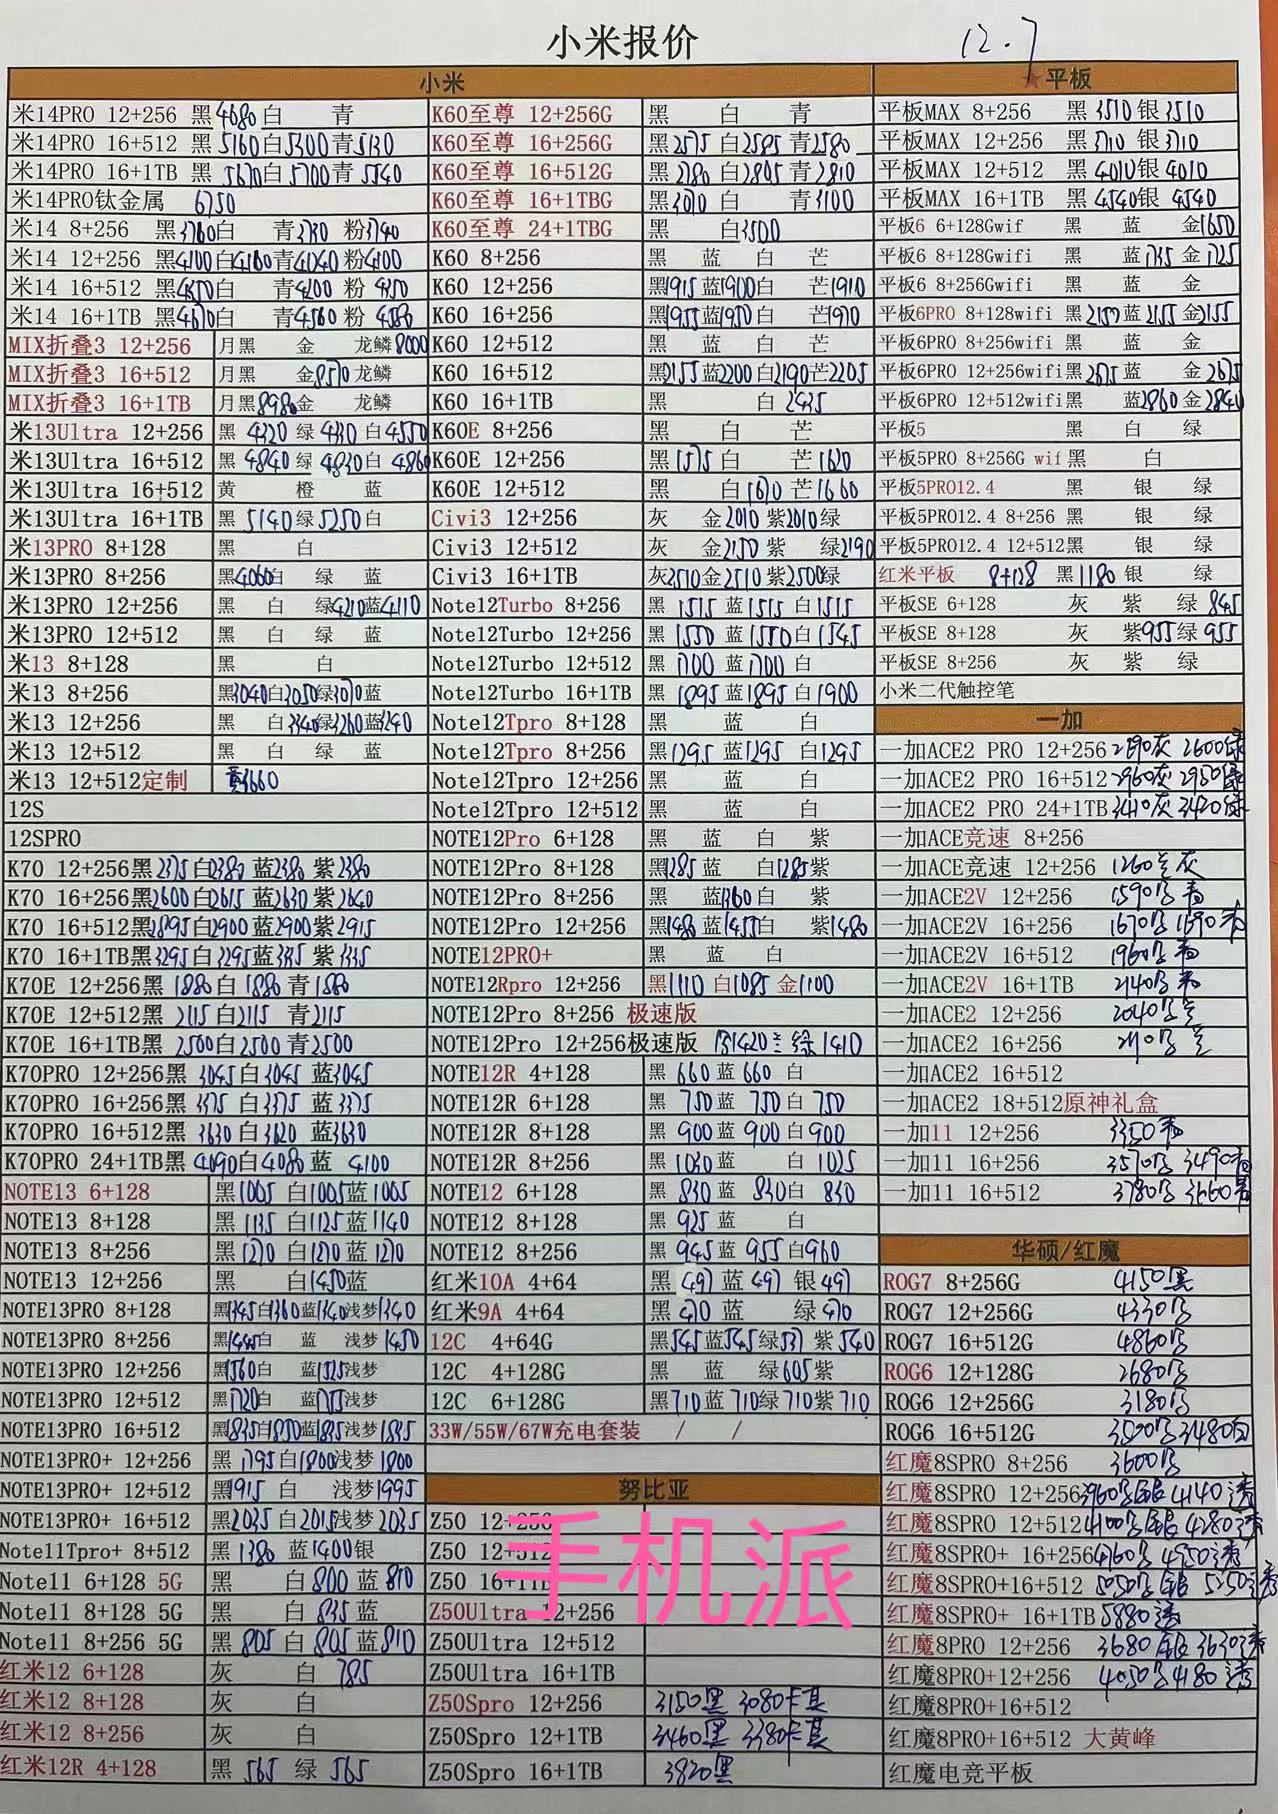 小米报价
12.7
小米
米14PRO 12+256 黑4680白 青
米14PRO 16+512 黑5160白5300青5130
米14PRO 16+1TB 黑5670白5700青5540
米14PRO钛金属 6750
米14 8+256 黑3760白 青3730 粉3740
米14 12+256 黑4100白4160青4040粉4100
米14 16+512 黑4350白 青4200 粉
米14 16+1TB 黑4670白 青4560 粉4580
MIX折叠3 12+256 月黑 金 龙鳞8000
MIX折叠3 16+512 月黑 金8570龙鳞
MIX折叠3 16+1TB 月黑8980金 龙鳞
米13Ultra 12+256 黑 4320 绿 4330 白4550
米13Ultra 16+512 黑 4840 绿 4830白 4860
米13Ultra 16+512 黄 橙 蓝
米13Ultra 16+1TB 黑 5140绿5250白
米13PRO 8+128 黑 白
米13PRO 8+256 黑4060白 绿 蓝
米13PRO 12+256 黑 白 绿4210蓝4110
米13PRO 12+512 黑 白 绿 蓝
米13 8+128 黑 白
米13 8+256 黑3040白3050绿3070蓝
米13 12+256 黑 白3340绿3260蓝3240
米13 12+512 黑 白 绿 蓝
米13 12+512定制 3660
12S
12SPRO
K70 12+256黑2375白2380 蓝2380 紫2380
K70 16+256黑2600白2615 蓝2630 紫2640
K70 16+512黑2895白2900 蓝2900紫2915
K70 16+1TB黑3295白3295蓝3315 紫3335
K70E 12+256黑 1880白 1880 青1880
K70E 12+512黑 2115白2115 青2115
K70E 16+1TB黑 2500白2500 青2500
K70PRO 12+256黑 3045白3045 蓝3045
K70PRO 16+256黑 3375 白3375 蓝3375
K70PRO 16+512黑 3630 白3620 蓝3630
K70PRO 24+1TB黑 4090白4080 蓝 4100
NOTE13 6+128 黑1005 白1005蓝1005
NOTE13 8+128 黑1135 白1125蓝1140
NOTE13 8+256 黑1270 白1270 蓝1270
NOTE13 12+256 黑 白1450蓝
NOTE13PRO 8+128 黑1345白1360蓝1340浅梦1340
NOTE13PRO 8+256 黑1445白 蓝 浅梦 1450
NOTE13PRO 12+256 黑1560白 蓝1525浅梦
NOTE13PRO 12+512 黑1720白 蓝1755浅梦
NOTE13PRO 16+512 黑1835白1850蓝1835浅梦1835
NOTE13PRO+ 12+256 黑1795白1800浅梦1800
NOTE13PRO+ 12+512 黑1915 白 浅梦1995
NOTE13PRO+ 16+512 黑2035 白2015浅梦2035
Note11Tpro+ 8+512 黑1380 蓝1400银
Note11 6+128 5G 黑 白800 蓝810
Note11 8+128 5G 黑 白 835 蓝
Note11 8+256 5G 黑 805 白 805 蓝810
红米12 6+128 灰 白 785
红米12 8+128 灰 白
红米12 8+256 灰 白
红米12R 4+128 黑 565 绿 565
K60至尊 12+256G 黑 白 青
K60至尊 16+256G 黑2575 白2585 青2580
K60至尊 16+512G 黑2780 白2805 青2810
K60至尊 16+1TBG 黑3070 白 青3100
K60至尊 24+1TBG 黑 白3500
K60 8+256 黑 蓝 白 芒
K60 12+256 黑1915蓝1900白 芒1910
K60 16+256 黑1955蓝1950白 芒1970
K60 12+512 黑 蓝 白 芒
K60 16+512 黑2155蓝2200白2190芒2205
K60 16+1TB 黑 白 2435
K60E 8+256 黑 白 芒
K60E 12+256 黑1575白 芒1620
K60E 12+512 黑 白1670芒1660
Civi3 12+256 灰 金2010紫2010绿
Civi3 12+512 灰 金2150紫 绿2190
Civi3 16+1TB 灰2510金2510紫2500绿
Note12Turbo 8+256 黑 1515 蓝1515 白1515
Note12Turbo 12+256 黑 1550 蓝1550白1545
Note12Turbo 12+512 黑 1700 蓝1700 白
Note12Turbo 16+1TB 黑 1895蓝1895白1900
Note12Tpro 8+128 黑 蓝 白
Note12Tpro 8+256 黑1295蓝1295 白1295
Note12Tpro 12+256 黑 蓝 白
Note12Tpro 12+512 黑 蓝 白
NOTE12Pro 6+128 黑 蓝 白 紫
NOTE12Pro 8+128 黑1285 蓝 白1285紫
NOTE12Pro 8+256 黑 蓝1360白 紫
NOTE12Pro 12+256 黑1480 蓝1455白 紫1480
NOTE12PRO+ 黑 蓝 白
NOTE12Rpro 12+256 黑1110 白1085 金1100
NOTE12Pro 8+256 极速版
NOTE12Pro 12+256极速版 1420 绿1410
NOTE12R 4+128 黑 660 蓝 660 白
NOTE12R 6+128 黑 750 蓝 750 白 750
NOTE12R 8+128 黑 900 蓝 900 白900
NOTE12R 8+256 黑 1030蓝 白 1025
NOTE12 6+128 黑 830 蓝 830白 830
NOTE12 8+128 黑 925 蓝 白
NOTE12 8+256 黑 945蓝 955 白960
红米10A 4+64 黑 497 蓝 497 银 497
红米9A 4+64 黑 470 蓝 绿 470
12C 4+64G 黑545蓝545绿537 紫 540
12C 4+128G 黑 蓝 绿605紫
12C 6+128G 黑710蓝 710绿 710紫 710
33W/55W/67W充电套装 / /
努比亚
Z50 12+256
Z50 12+512
Z50 16+1TB
Z50Ultra 12+256
Z50Ultra 12+512
Z50Ultra 16+1TB
Z50Spro 12+256 3150黑 3080卡其
Z50Spro 12+1TB 3460黑 3380卡其
Z50Spro 16+1TB 3820黑
手机派
★平板
平板MAX 8+256 黑3510银3510
平板MAX 12+256 黑3710银3710
平板MAX 12+512 黑4010银4010
平板MAX 16+1TB 黑4540银4540
平板6 6+128Gwif 黑 蓝 金1650
平板6 8+128Gwifi 黑 蓝1735 金1725
平板6 8+256Gwifi 黑 蓝 金
平板6PRO 8+128wifi 黑2157蓝2155金2155
平板6PRO 8+256wifi 黑 蓝 金
平板6PRO 12+256wifi黑2675蓝 金2675
平板6PRO 12+512wifi黑 蓝2860金2840
平板5 黑 白 绿
平板5PRO 8+256G wif黑 白
平板5PRO12.4 黑 银 绿
平板5PRO12.4 8+256 黑 银 绿
平板5PRO12.4 12+512黑 银 绿
红米平板 8+128 黑1180银 绿
平板SE 6+128 灰 紫 绿 845
平板SE 8+128 灰 紫955绿 955
平板SE 8+256 灰 紫 绿
小米二代触控笔
一加
一加ACE2 PRO 12+256 2590灰 2600绿
一加ACE2 PRO 16+512 2960灰 2950绿
一加ACE2 PRO 24+1TB 3410灰 3420绿
一加ACE竞速 8+256
一加ACE竞速 12+256 1260兰灰
一加ACE2V 12+256 1590黑青
一加ACE2V 16+256 1670黑 1690青
一加ACE2V 16+512 1960黑青
一加ACE2V 16+1TB 2140黑青
一加ACE2 12+256 2040黑兰
一加ACE2 16+256 黑兰
一加ACE2 16+512
一加ACE2 18+512原神礼盒
一加11 12+256 3350青
一加11 16+256 3570黑 3490青
一加11 16+512 3780黑 3660青
华硕/红魔
ROG7 8+256G 4150黑
ROG7 12+256G 4330黑
ROG7 16+512G 4860黑
ROG6 12+128G 2680黑
ROG6 12+256G 3180黑
ROG6 16+512G 3500黑3480白
红魔8SPRO 8+256 3600黑
红魔8SPRO 12+256 3960黑银 4140透
红魔8SPRO 12+512 4100黑银 4280透
红魔8SPRO+ 16+256 4760黑 4950透
红魔8SPRO+16+512 5050黑银 5250透
红魔8SPRO+ 16+1TB 5880透
红魔8PRO 12+256 3680黑银 3630透
红魔8PRO+12+256 4050黑4180透
红魔8PRO+16+512
红魔8PRO+16+512 大黄峰
红魔电竞平板